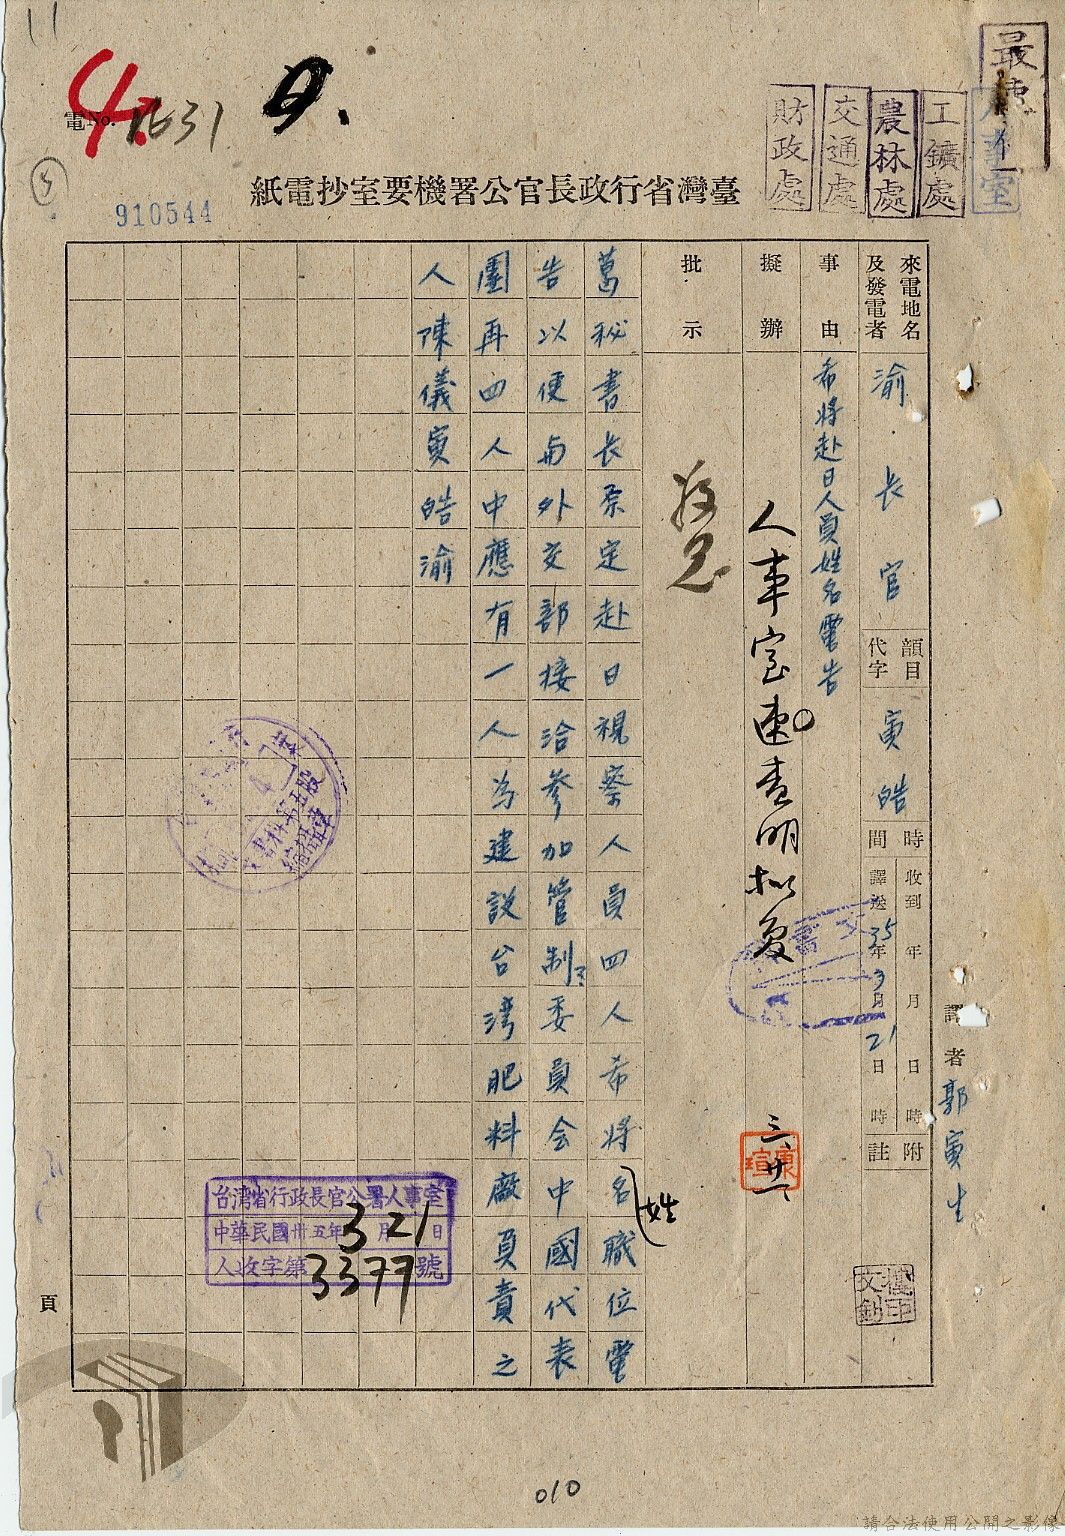 11
電No. 1631
5
910544
臺灣省行政長官公署機要室抄電紙
工鑛處
農林處
交通處
財政處
來電地名及發電者
渝 長官
韻目代字
寅皓
時間
收到 年 月 日 時
譯送 35年3月21日 時
附註
譯者 郭寅生
事由
希將赴日人員姓名電告
擬辦
人事室速查明拟复
三、廿一
批示
葛秘書長原定赴日視察人員四人希將姓名職位電
告以便與外交部接洽參加管制委員会中國代表
團再四人中應有一人為建設台湾肥料廠負責之
人陳儀寅皓渝
台湾省行政長官公署人事室
中華民國卅五年3月21日
人收字第3377號
頁
010
請合法使用公開之影像